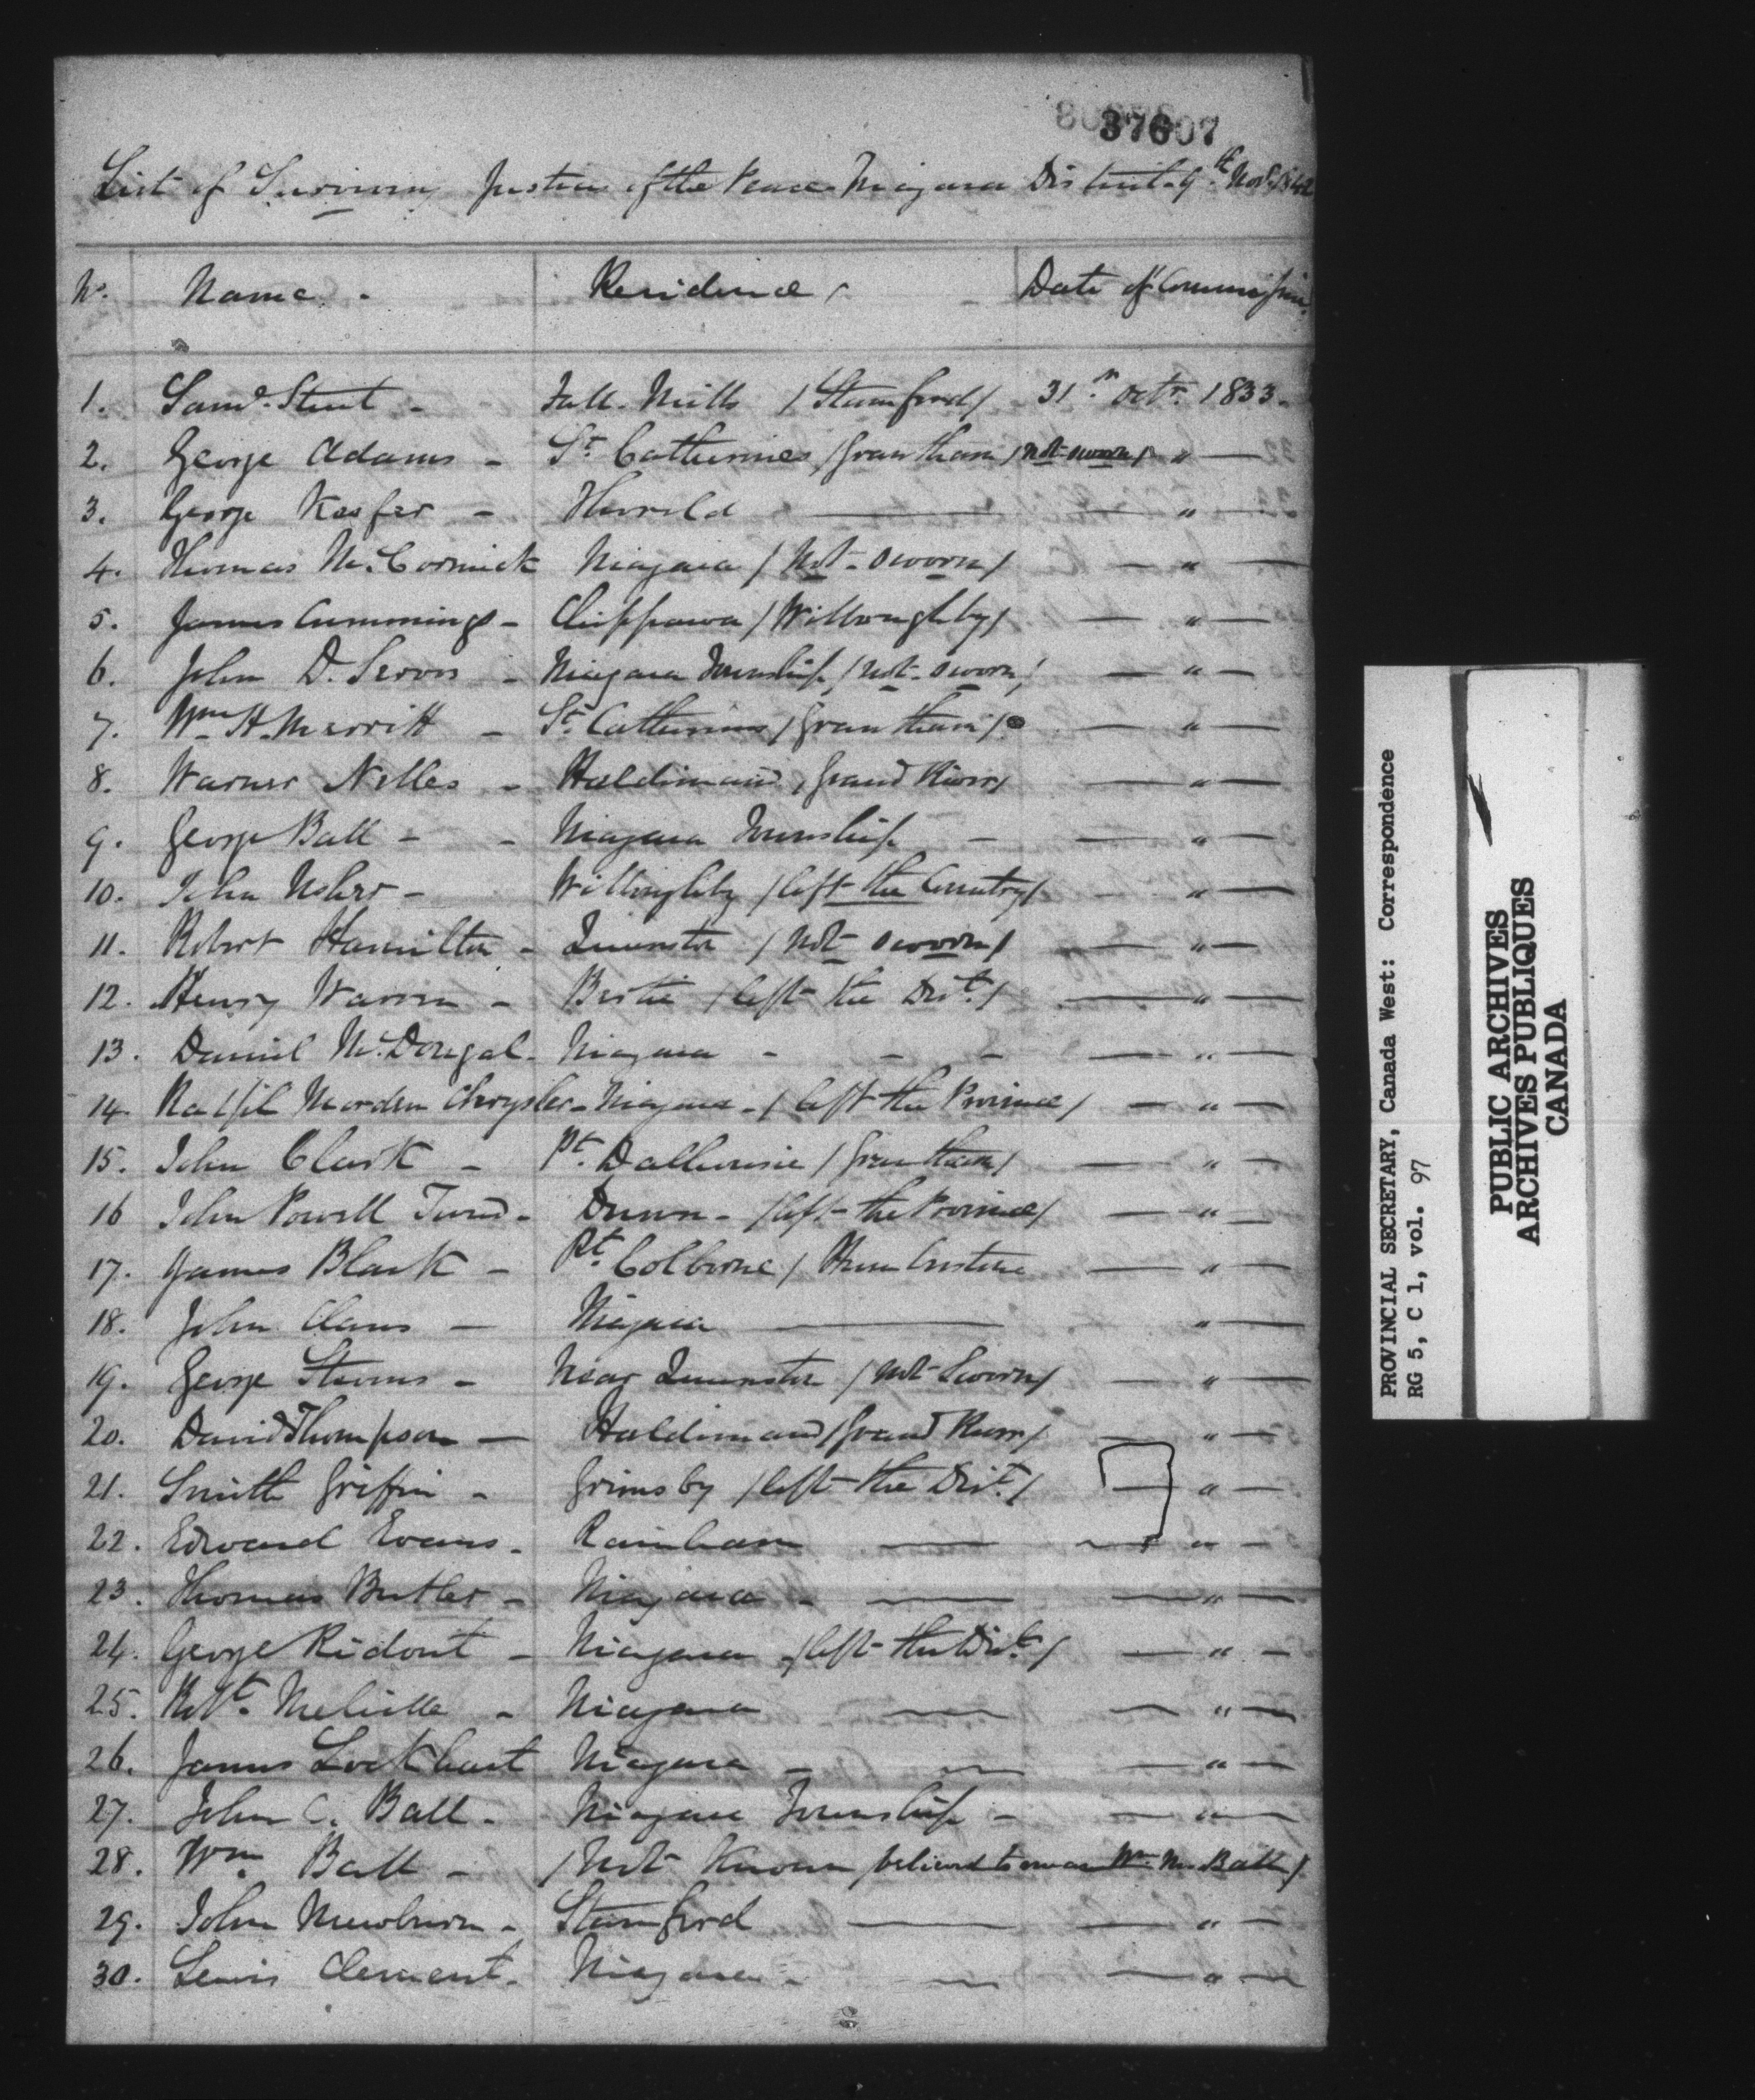 37607
List of Surviving Justices of the Peace Niagara District 9th Novr 1842
No. Name. Residence Date of Commission.
1. Saml. Street - Fall Mills /Stamford/ 31st Octr. 1833.
2. George Adams - St. Catherines /Grantham/ not sworn/ " —
3. George Keefer - Thorold — — " —
4. Thomas McCormick Niagara / Not-sworn/ — " —
5. James Cummings - Chippawa /Willoughby/ — " —
6. John D. Servos - Niagara Township /not-sworn/ — " —
7. Wm H. Merritt - St. Catherines /Grantham/ — " —
8. Warner Nelles - Haldimand, Grand River/ — " —
9. George Ball - - Niagara Township - — " —
10. John Usher - Willoughby /left the Country/ " —
11. Robert Hamilton - Queenston / not sworn/ — " —
12. Henry Warren - Bertie /left the Dist./ — " —
13. Daniel McDougal - Niagara - - - — " —
14. Ralfil Morden Chrysler - Niagara - / left the Province/ — " —
15. John Clark - Pt. Dalhousie /Grantham/ — " —
16 John Powell Turnd - Dunn - /left the Province/ — " —
17. James Black - Pt. Colborne / Humberstone — " —
18. John Claus — Niagara — " —
19. George Stevens - Near Queenston /not Sworn/ — " —
20. David Thompson — Haldimand /Grand River/ — " —
21. Smith Griffin - Grimsby /left the Dist./ — " —
22. Edward Evans - Rainham — — " —
23. Thomas Butler - Niagara - — — " —
24. George Ridout - Niagara - /left the Dist./ — " —
25. Robt. Melville - Niagara — — " —
26. James Lockhart Niagara - — — " —
27. John C. Ball - Niagara Township - — " —
28. Wm Ball - /Not Known /believed to mean Wm. M. Ball/
29. John Mewburn - Stamford — — " —
30. Lewis Clement - Niagara - — — " —
PROVINCIAL SECRETARY, Canada West: Correspondence
RG 5, C 1, vol. 97
PUBLIC ARCHIVES
ARCHIVES PUBLIQUES
CANADA